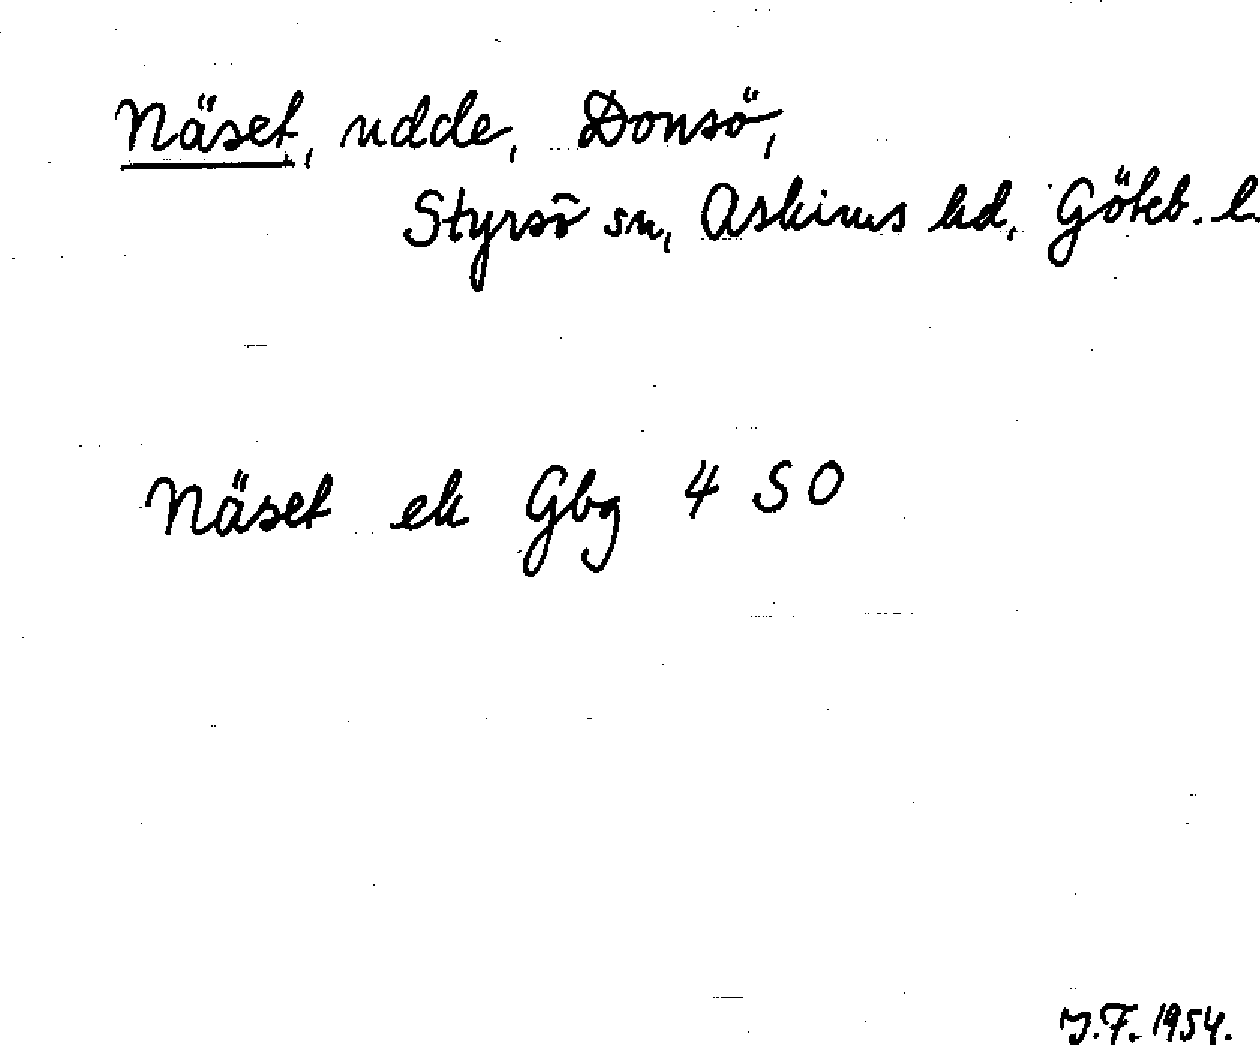 Näset, udde, Donsö,
Styrsö sn, Askims hd, Göteb. l.
Näset ek Gbg 4 SO
J.F. 1954.